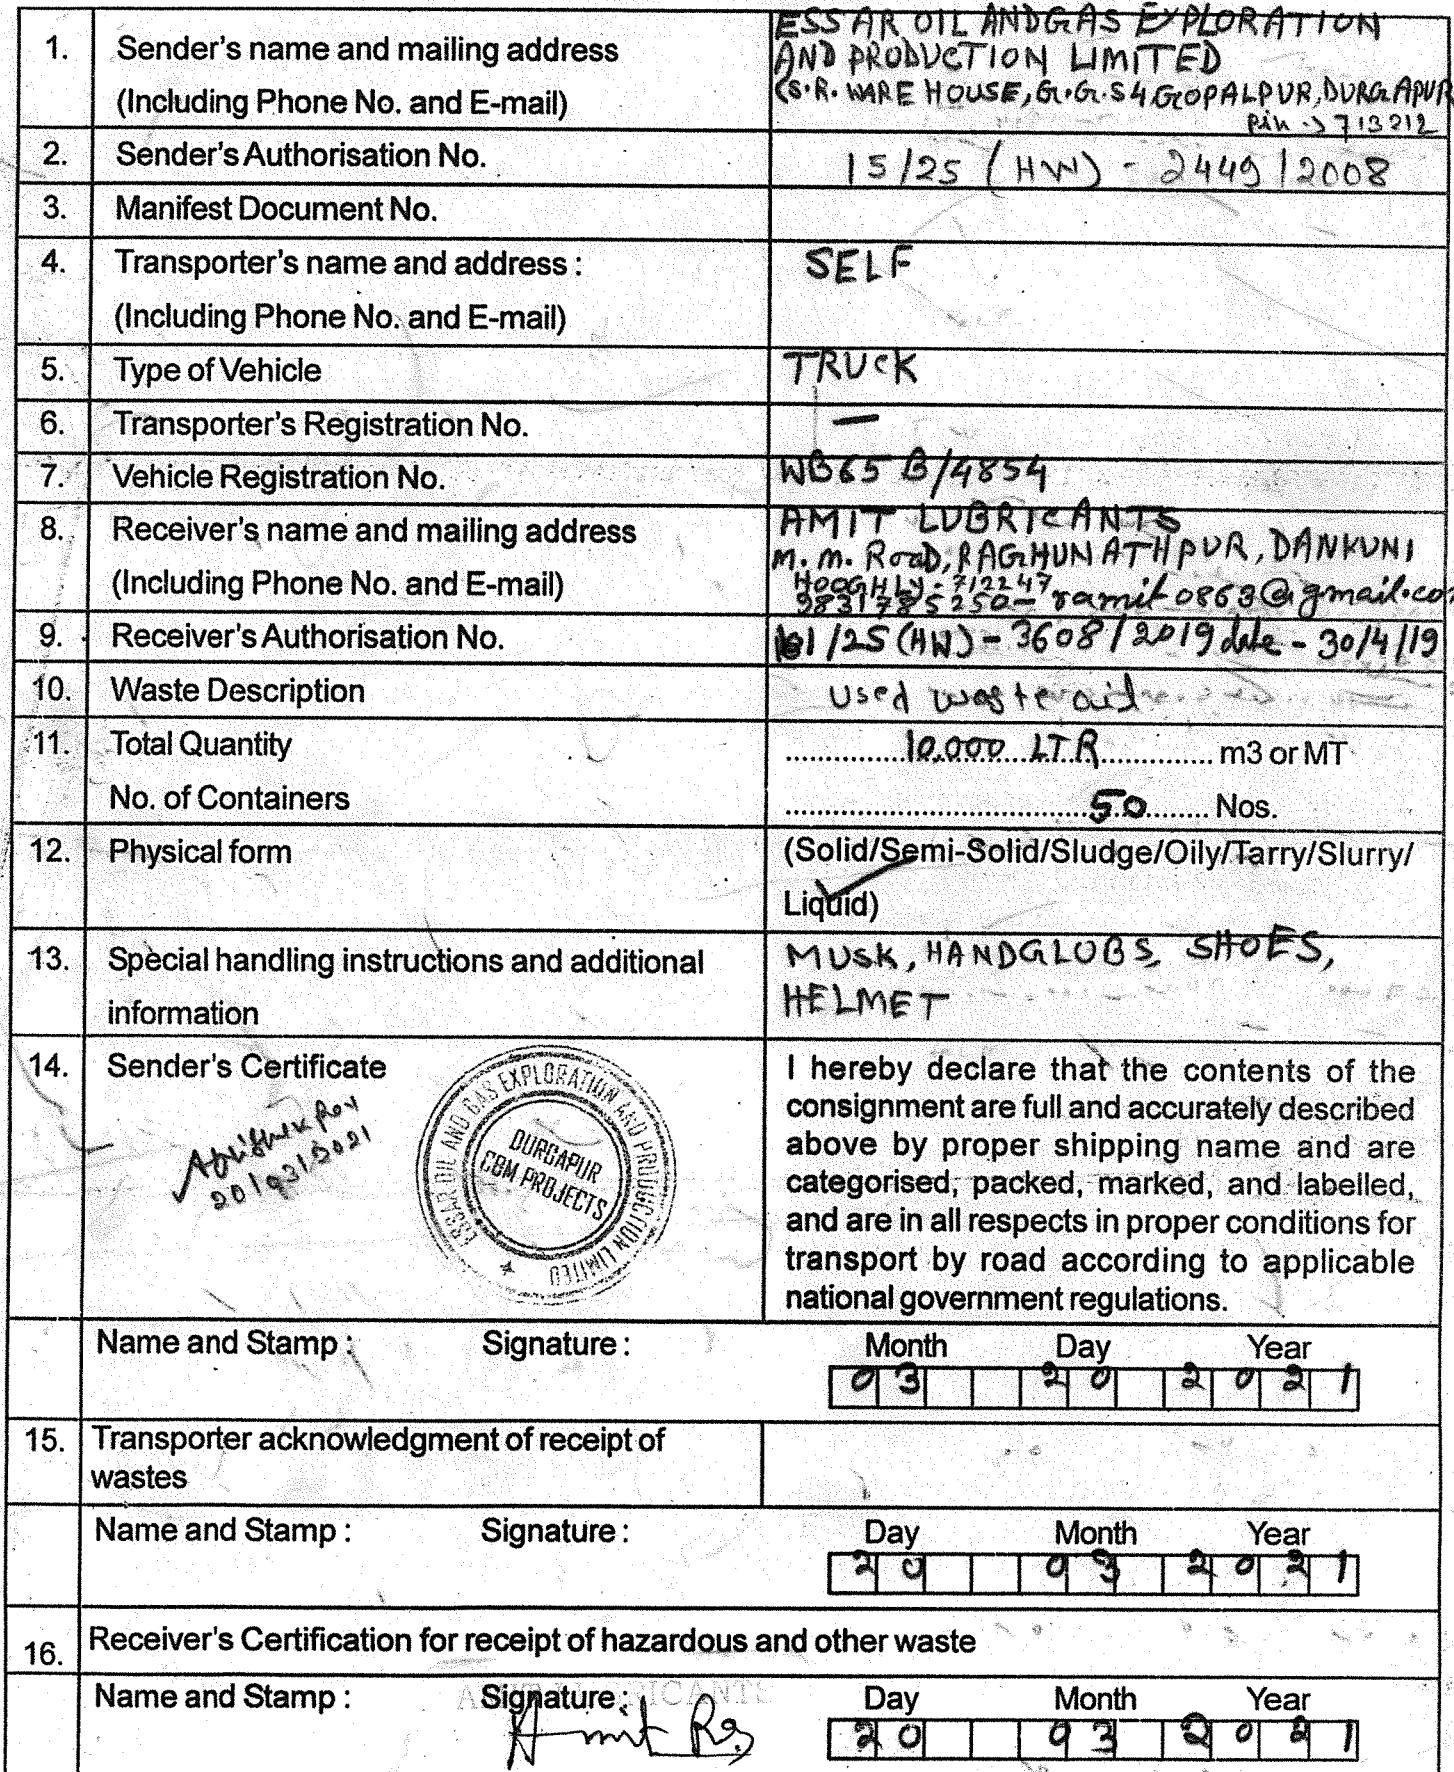 1. Sender's name and mailing address
(Including Phone No. and E-mail)
ESSAR OIL AND GAS EXPLORATION
AND PRODUCTION LIMITED
(S.R. WARE HOUSE, G.G.S 4 GOPALPUR, DURGAPUR
Pin -> 713212
2. Sender's Authorisation No. 15/25 (HW) - 2449/2008
3. Manifest Document No.
4. Transporter's name and address : SELF
(Including Phone No. and E-mail)
5. Type of Vehicle TRUCK
6. Transporter's Registration No. —
7. Vehicle Registration No. WB65 B/4854
8. Receiver's name and mailing address
(Including Phone No. and E-mail)
AMIT LUBRICANTS
M.M. Road, RAGHUNATHPUR, DANKUNI
HOOGHLY - 712247
9831785250 - ramit0863@gmail.com
9. Receiver's Authorisation No. 101/25 (HW) - 3608/2019 date - 30/4/19
10. Waste Description used waste oil
11. Total Quantity 10,000 LTR m3 or MT
No. of Containers 50 Nos.
12. Physical form (Solid/Semi-Solid/Sludge/Oily/Tarry/Slurry/
Liquid)
13. Special handling instructions and additional
information
MUSK, HANDGLOBS, SHOES,
HELMET
14. Sender's Certificate
Abhishek Roy
20/03/2021
ESSAR OIL AND GAS EXPLORATION AND PRODUCTION LIMITED
DURGAPUR
CBM PROJECTS
I hereby declare that the contents of the
consignment are full and accurately described
above by proper shipping name and are
categorised, packed, marked, and labelled,
and are in all respects in proper conditions for
transport by road according to applicable
national government regulations.
Name and Stamp : Signature : Month Day Year
03 20 2021
15. Transporter acknowledgment of receipt of
wastes
Name and Stamp : Signature : Day Month Year
20 03 2021
16. Receiver's Certification for receipt of hazardous and other waste
Name and Stamp : Signature : Day Month Year
Amit 20 03 2021